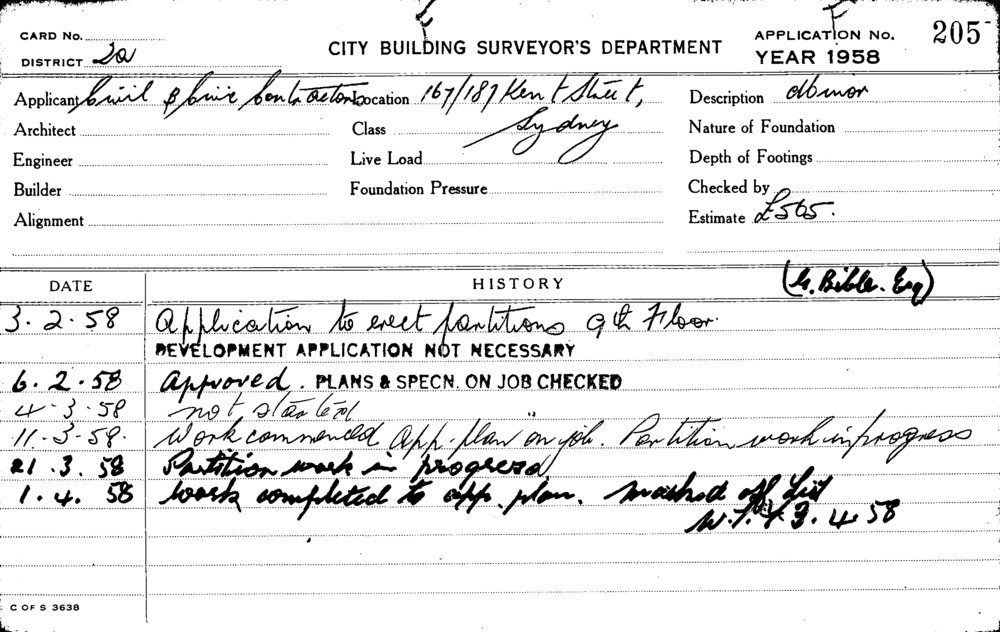 F
F
CARD No.
CITY BUILDING SURVEYOR'S DEPARTMENT
APPLICATION No. 205
DISTRICT 2a
YEAR 1958
Applicant Civil & Civic Contractors
Location 167/187 Kent Street,
Sydney
Description
Architect
Class
Nature of Foundation
Engineer
Live Load
Depth of Footings
Builder
Foundation Pressure
Checked by
Alignment
Estimate £565.
DATE
HISTORY
(G. Bible. Esq)
3.2.58 Application to erect partitions 9th Floor.
DEVELOPMENT APPLICATION NOT NECESSARY
6.2.58 Approved. PLANS & SPECN. ON JOB CHECKED
4.3.58 not started
11.3.58. Work commenced app. plan on job. Partition work in progress
21.3.58 Partition work in progress
1.4.58 Work completed to app. plan. Marked off List
3.4.58
C OF S 3638